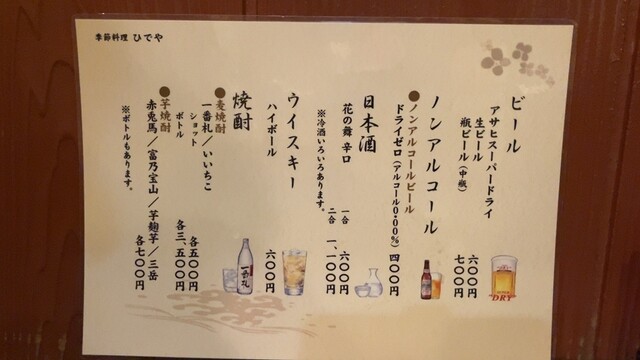 季節料理 ひでや
ビール
アサヒスーパードライ
生ビール 六〇〇円
瓶ビール(中瓶) 七〇〇円
ノンアルコール
●ノンアルコールビール
ドライゼロ(アルコール0.00%) 四〇〇円
日本酒
花の舞 辛口 一合 六〇〇円
二合 一、一〇〇円
※冷酒いろいろあります。
ウイスキー
ハイボール 六〇〇円
焼酎
●麦焼酎
一番札/いいちこ
ショット 各五〇〇円
ボトル 各三、五〇〇円
●芋焼酎
赤兎馬/富乃宝山/芋麹芋/三岳 各七〇〇円
※ボトルもあります。
一番札
DRY